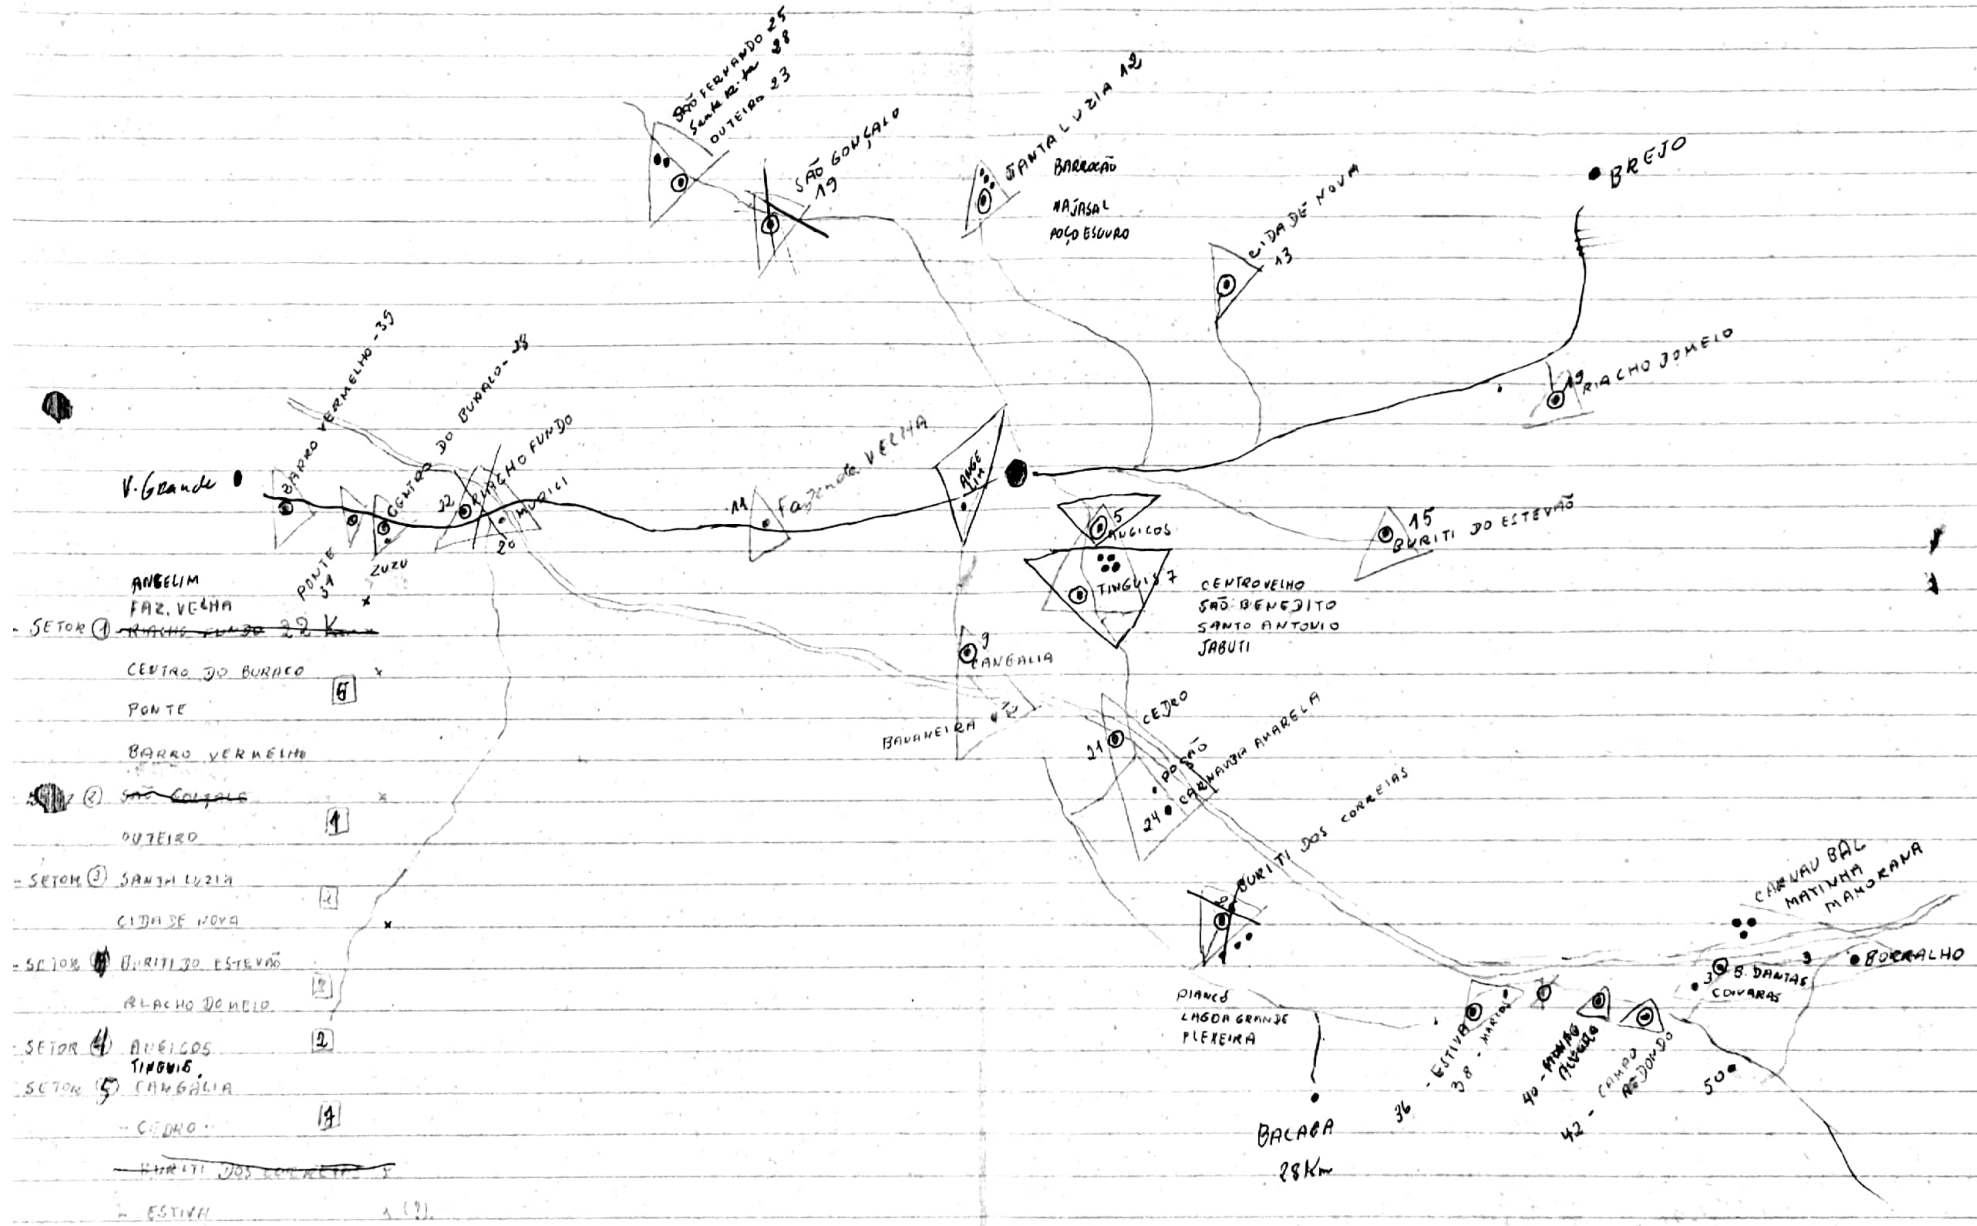 SÃO FERNANDO 25
Santa Rita 28
OUTEIRO 23
SÃO GONÇALO
19
SANTA LUZIA 12
BARROCÃO
MAJASAL
POÇO ESCURO
CIDADE NOVA
13
BREJO
RIACHO DO MEIO
19
V. Grande
BARRO VERMELHO - 35
CENTRO DO BURACO - 28
RIACHO FUNDO
22
MURICI
20
PONTE
31
ZUZU
11
Fazenda VELHA
ANGE
LIM
5
ANGICOS
TINGUIS 7
CENTRO VELHO
SÃO BENEDITO
SANTO ANTONIO
JABUTI
15
BURITI DO ESTEVÃO
9
CANGALIA
BANANEIRA
CEDRO
21
POSÃO
CARNAUBA AMARELA
24
BURITI DOS CORREIAS
PIANCÓ
LAGOA GRANDE
FLEXEIRA
BACABA
28 Km
36 - ESTIVA
38 - MARION
40 -
42 - CAMPO
REDONDO
50
CARNAUBAL
MATINHA
MAMORANA
3
B. DANTAS
COIVARAS
3
BORRALHO
ANGELIM
FAZ. VELHA
- SETOR 1 RIACHO FUNDO 22 Km x
CENTRO DO BURACO x
5
PONTE
BARRO VERMELHO
2 SÃO GONÇALO x
1
OUTEIRO
- SETOR 3 SANTA LUZIA
CIDADE NOVA x
- SETOR BURITI DO ESTEVÃO
2
RIACHO DO MEIO
- SETOR 4 ANGICOS 2
TINGUIS
SETOR 5 CANGALIA
- CEDRO -
BURITI DOS CORREIA x
ESTIVA